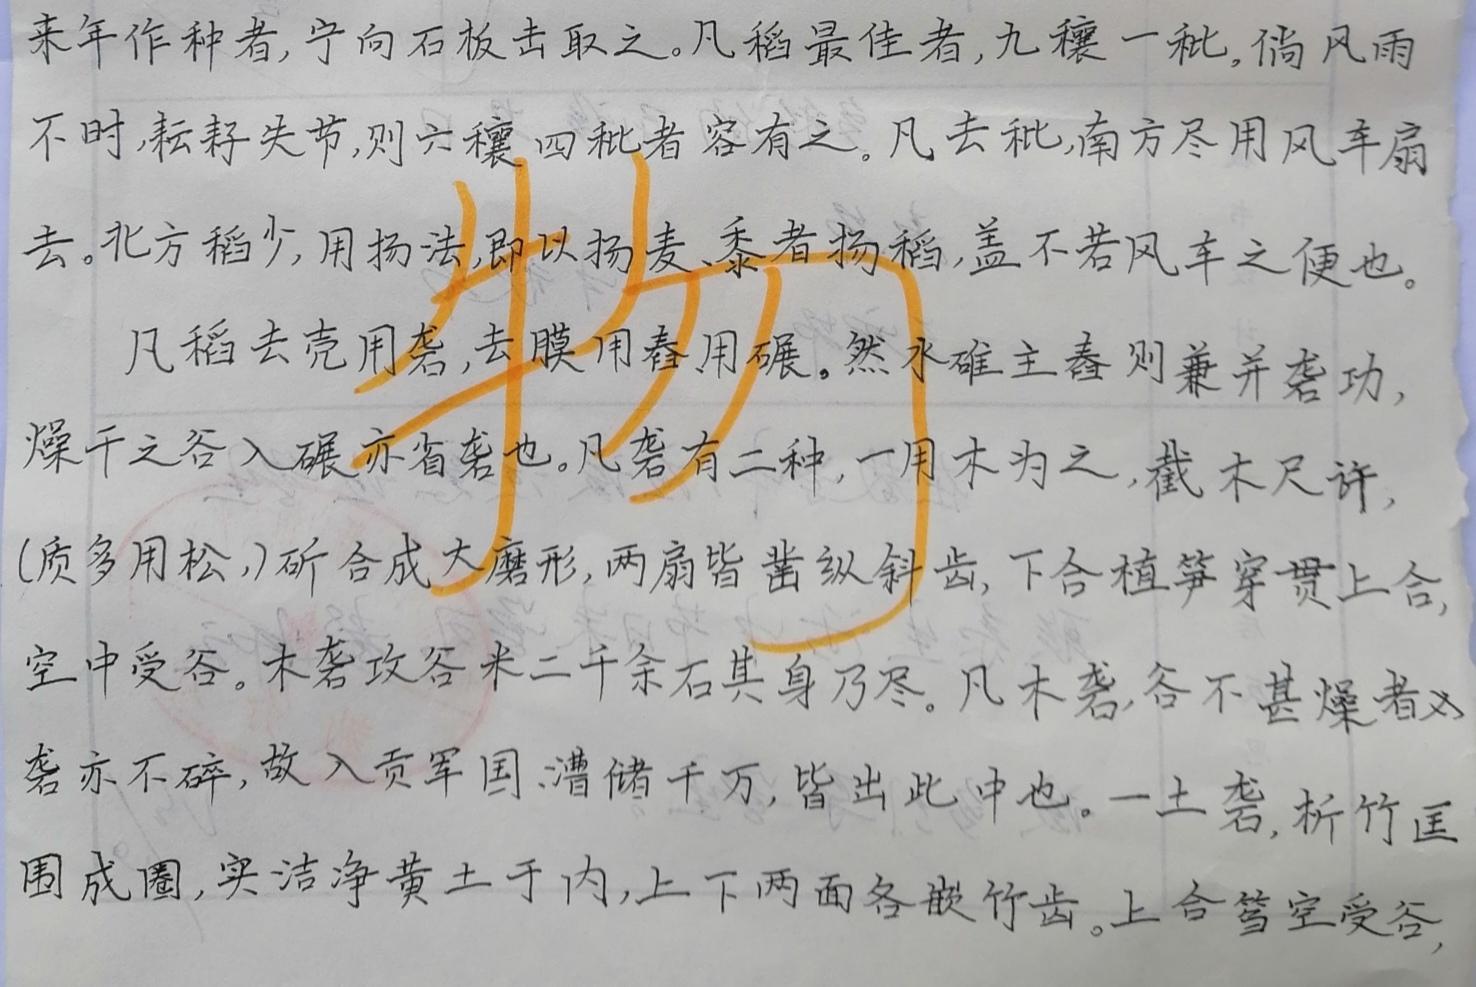 来年作种者,宁向石板击取之。凡稻最佳者,九穰一秕。倘风雨
不时,耘耔失节,则六穰四秕者容有之。凡去秕,南方尽用风车扇
去。北方稻少,用扬法,即以扬麦、黍者扬稻,盖不若风车之便也。
凡稻去壳用砻,去膜用舂用碾。然水碓主舂则兼并砻功,
燥干之谷入碾亦省砻也。凡砻有二种,一用木为之,截木尺许,
(质多用松,)斫合成大磨形,两扇皆凿纵斜齿,下合植笋穿贯上合,
空中受谷。木砻攻谷米二千余石其身乃尽。凡木砻,谷不甚燥者入
砻亦不碎,故入贡军国、漕储千万,皆出此中也。一土砻,析竹匡
围成圈,实洁净黄土于内,上下两面各嵌竹齿。上合篘空受谷,
物